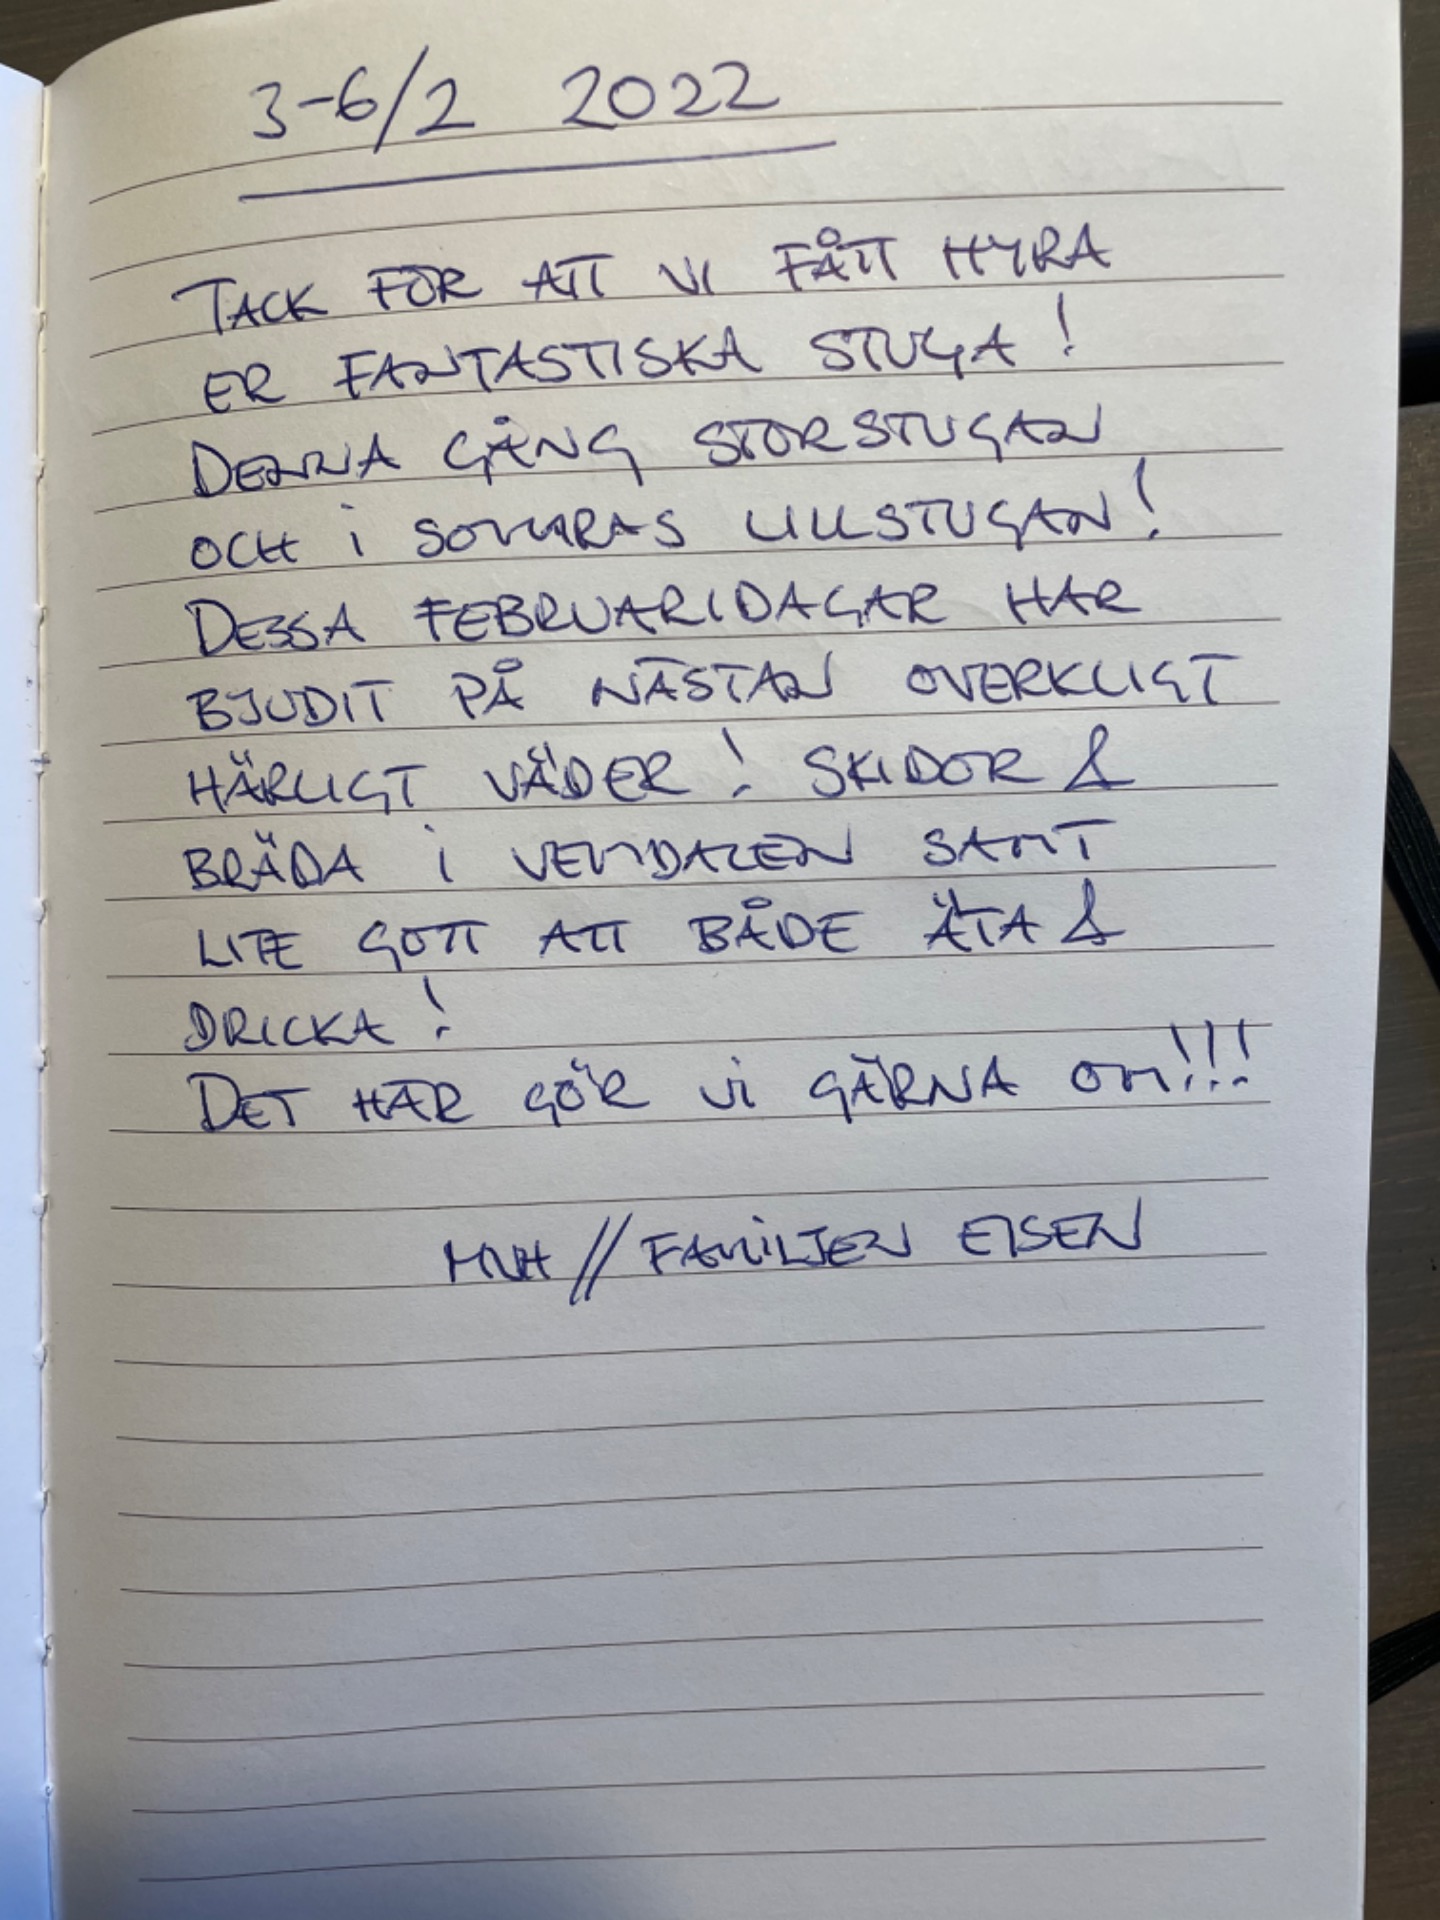 3-6/2 2022
TACK FÖR ATT VI FÅTT HYRA
ER FANTASTISKA STUGA!
DENNA GÅNG STORSTUGAN
OCH I SOMRAS LILLSTUGAN!
DESSA FEBRUARIDAGAR HAR
BJUDIT PÅ NÄSTAN OVERKLIGT
HÄRLIGT VÄDER! SKIDOR &
BRÄDA I VEMDALEN SAMT
LITE GOTT ATT BÅDE ÄTA &
DRICKA!
DET HÄR GÖR VI GÄRNA OM!!!
MVH // FAMILJEN EISEN